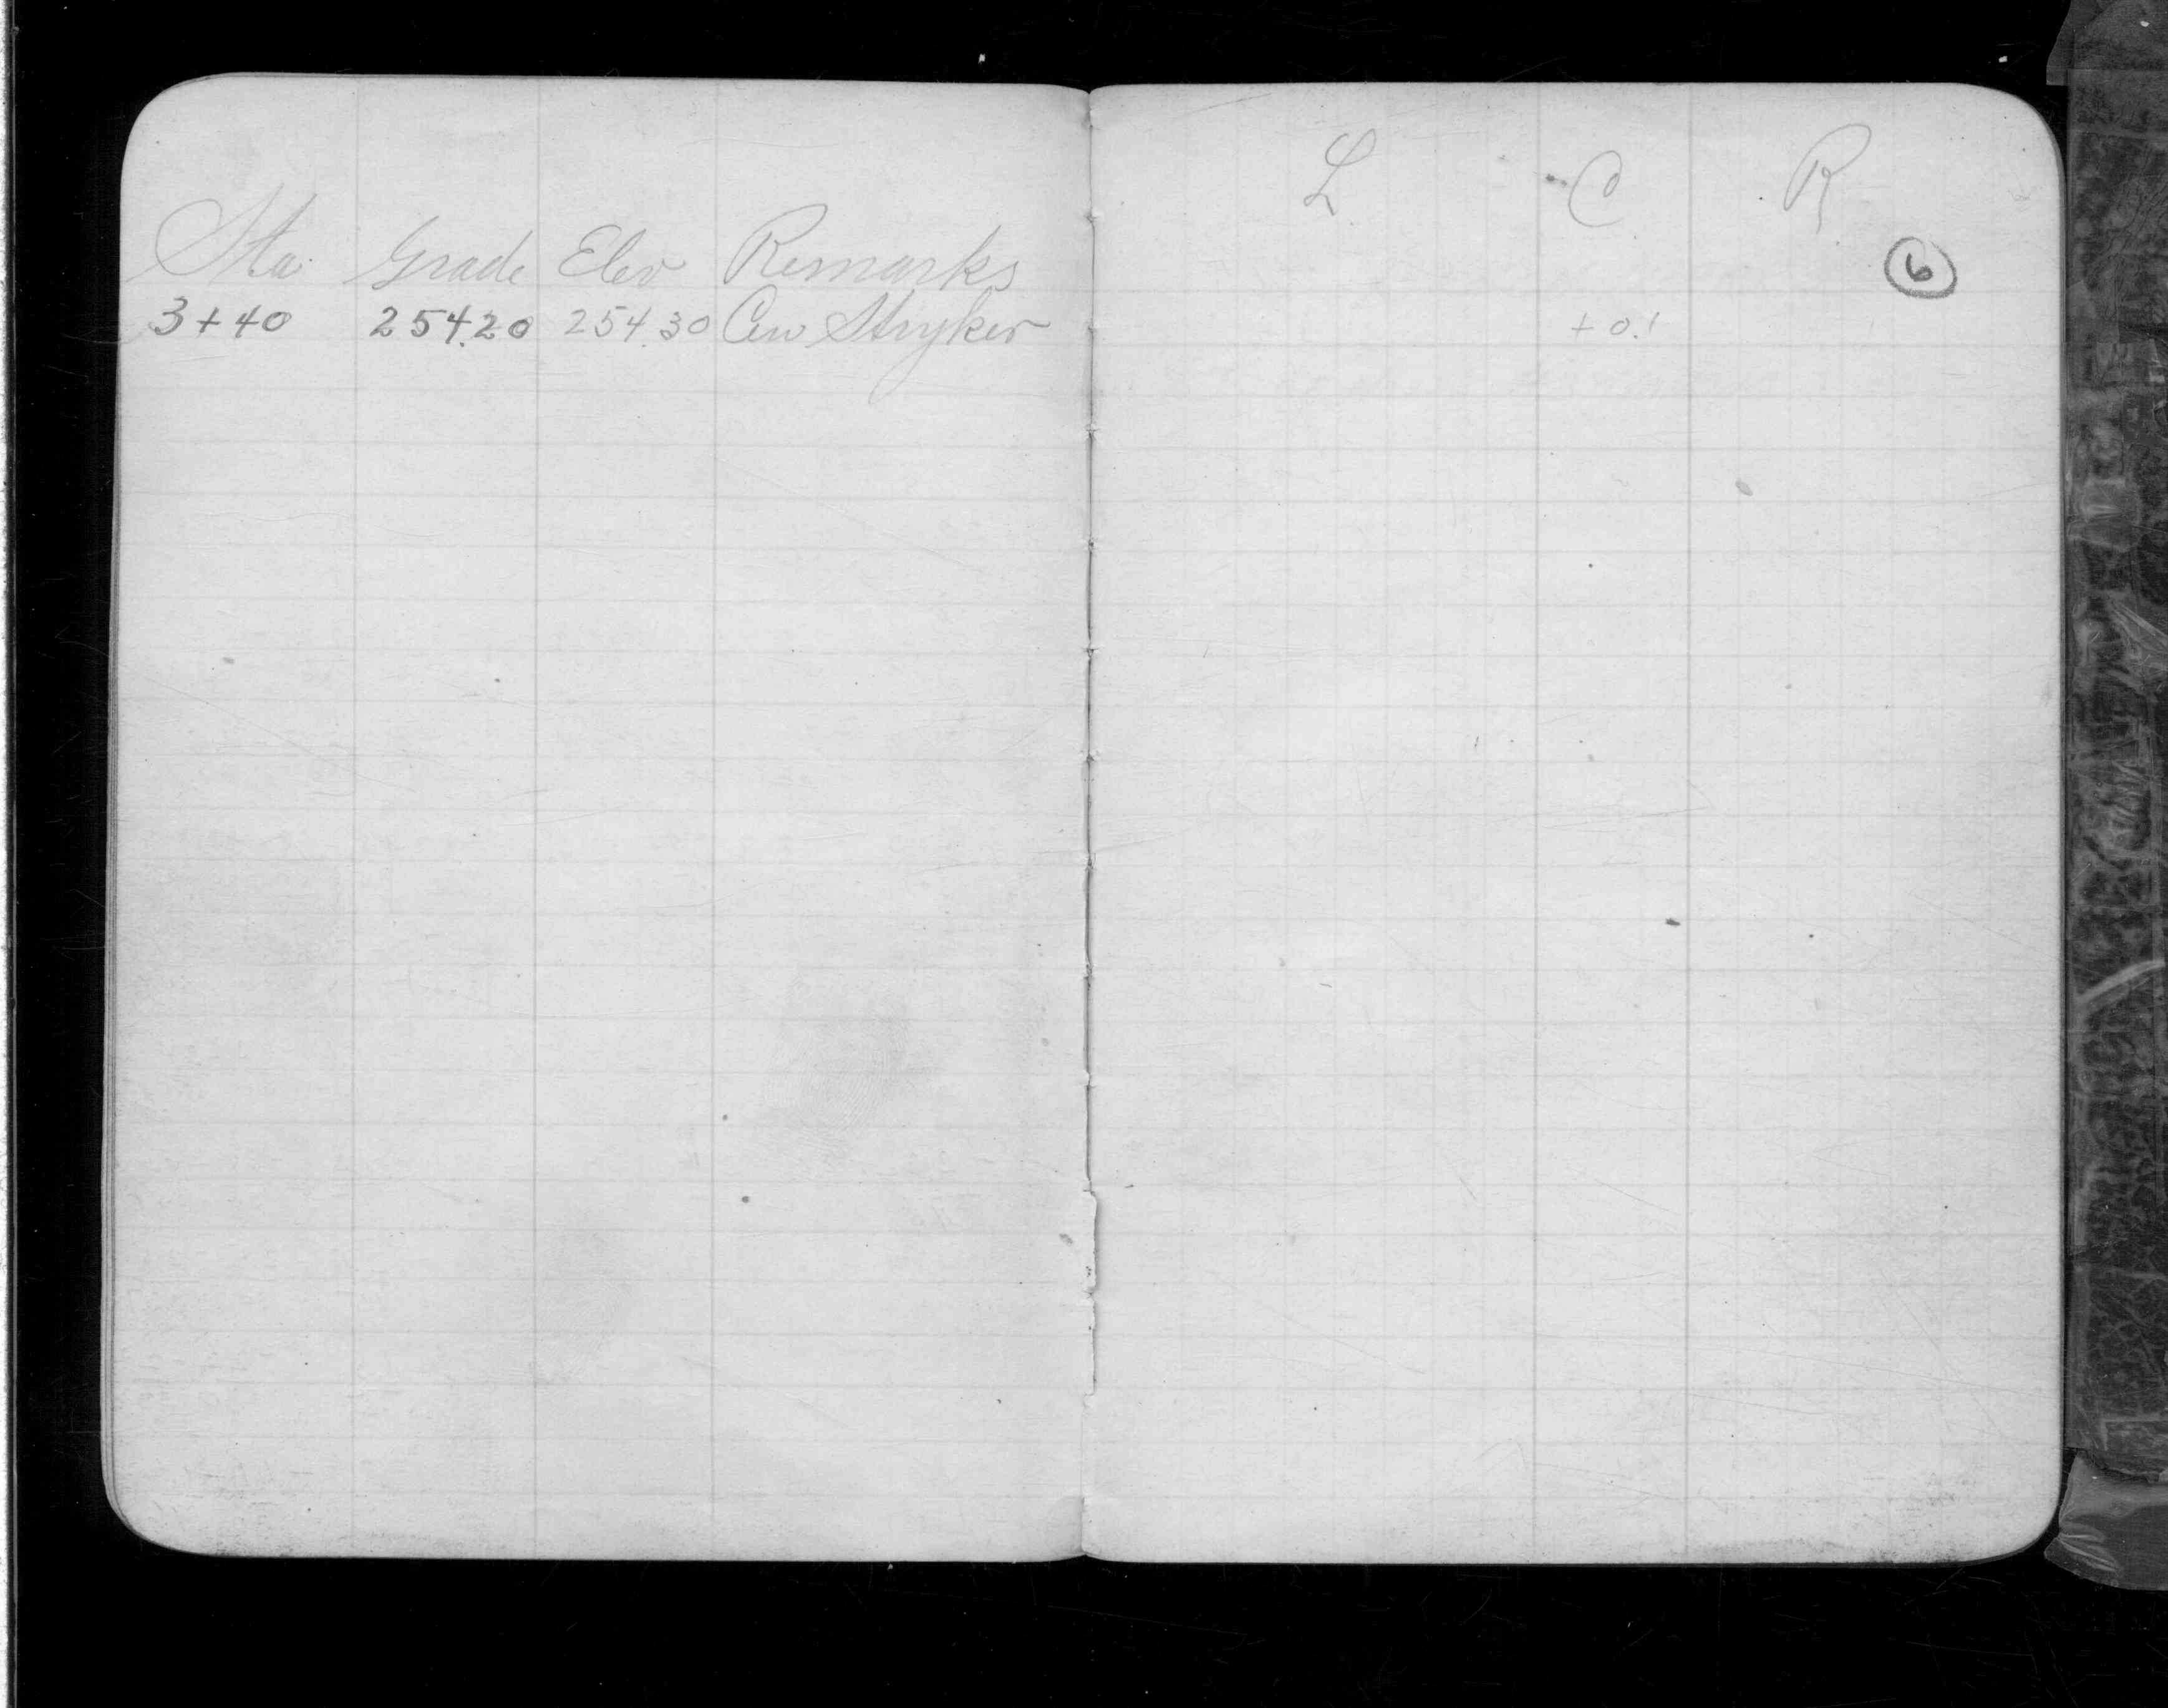 L C R
Sta. Grade Elev Remarks
6
3+40 254.20 254.30 Cen Stryker +0.1